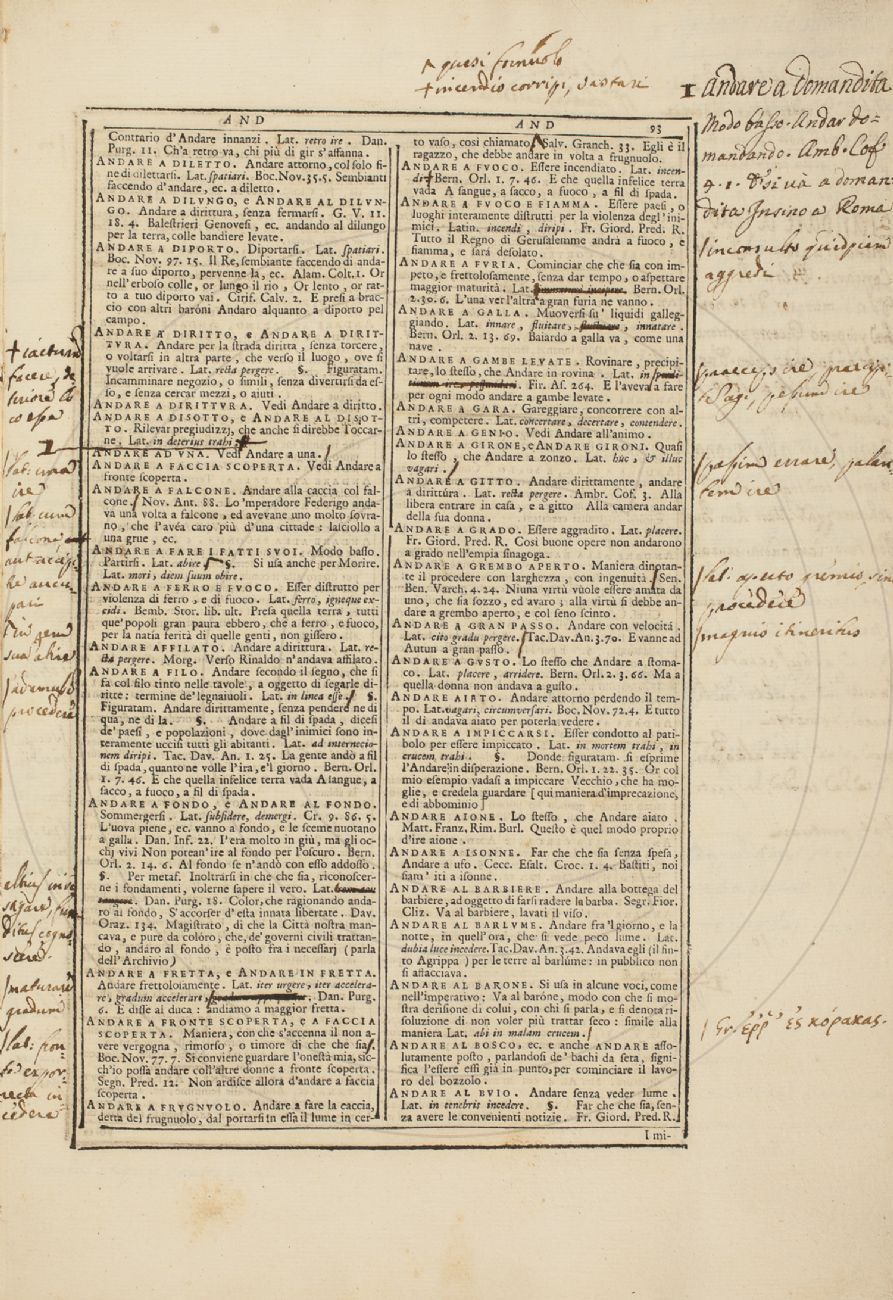 ^ quasi fornuolo
+ incendio corripi, vastari
1 andare a domandita
Modo basso. Andar do-
mandando. Amb. Cof
4. 1. Vassi uà a doman
dita Insino a Roma
inconsulto quidpiam
aggredi
AND
AND
93
Contrario d'Andare innanzi. Lat. retro ire. Dan.
Purg. 11. Ch'a retro va, chi più di gir s'affanna.
ANDARE A DILETTO. Andare attorno, col solo fi-
ne di dilettarsi. Lat. spatiari. Boc. Nov. 35. 5. Sembianti
faccendo d'andare, ec. a diletto.
ANDARE A DILVNGO, e ANDARE AL DILVN-
GO. Andare a dirittura, senza fermarsi. G. V. 11.
18. 4. Balestrieri Genovesi, ec. andando al dilungo
per la terra, colle bandiere levate.
ANDARE A DIPORTO. Diportarsi. Lat. spatiari.
Boc. Nov. 97. 15. Il Re, sembiante faccendo di anda-
re a suo diporto, pervenne là, ec. Alam. Colt. 1. Or
nell'erboso colle, or lungo il rio, Or lento, or rat-
to a tuo diporto vai. Cirif. Calv. 2. E presi a brac-
cio con altri baroni Andaro alquanto a diporto pel
campo.
ANDARE A DIRITTO, e ANDARE A DIRIT-
TVRA. Andare per la strada diritta, senza torcere,
o voltarsi in altra parte, che verso il luogo, ove si
vuole arrivare. Lat. recta pergere. §. Figuratam.
Incamminare negozio, o simili, senza divertirsi da es-
so, e senza cercar mezzi, o aiuti.
ANDARE A DIRITTVRA. Vedi Andare a diritto.
ANDARE A DISOTTO, e ANDARE AL DISOT-
TO. Rilevar pregiudizj; che anche si direbbe Toccar-
ne. Lat. in deterius trahi
ANDARE AD VNA. Vedi Andare a una.
ANDARE A FACCIA SCOPERTA. Vedi Andare a
fronte scoperta.
ANDARE A FALCONE. Andare alla caccia col fal-
cone. Nov. Ant. 88. Lo 'mperadore Federigo anda-
va una volta a falcone, ed avevane uno molto sovra-
no, che l'avea caro più d'una cittade: lasciollo a
una grue, ec.
ANDARE A FARE I FATTI SVOI. Modo basso.
Partirsi. Lat. abire §. Si usa anche per Morire.
Lat. mori, diem suum obire.
ANDARE A FERRO E FVOCO. Esser distrutto per
violenza di ferro, e di fuoco. Lat. ferro, igneque ex-
cidi. Bemb. Stor. lib. ult. Presa quella terra, tutti
que'popoli gran paura ebbero, che a ferro, e fuoco,
per la natia ferità di quelle genti, non gissero.
ANDARE AFFILATO. Andare a dirittura. Lat. re-
cta pergere. Morg. Verso Rinaldo n'andava affilato.
ANDARE A FILO. Andare secondo il segno, che si
fa col filo tinto nelle tavole, a oggetto di segarle di-
ritte: termine de'legnaiuoli. Lat. in linea esse. §.
Figuratam. Andare dirittamente, senza pendere ne di
qua, ne di là. §. Andare a fil di spada, dicesi
de'paesi, e popolazioni, dove dagl'inimici sono in-
teramente uccisi tutti gli abitanti. Lat. ad internecio-
nem diripi. Tac. Dav. An. 1. 25. La gente andò a fil
di spada, quanto ne volle l'ira, e'l giorno. Bern. Orl.
1. 7. 46. E che quella infelice terra vada A sangue, a
sacco, a fuoco, a fil di spada.
ANDARE A FONDO, e ANDARE AL FONDO.
Sommergersi. Lat. subsidere, demergi. Cr. 9. 86. 5.
L'uova piene, ec. vanno a fondo, e le sceme nuotano
a galla. Dan. Inf. 22. I'era molto in giù, ma gli oc-
chj vivi Non potean'ire al fondo per l'oscuro. Bern.
Orl. 2. 14. 6. Al fondo se n'andò con esso addosso.
§. Per metaf. Inoltrarsi in che che sia, riconoscer-
ne i fondamenti, volerne sapere il vero. Lat.
Dan. Purg. 18. Color, che ragionando anda-
ro al fondo, S'accorser d'esta innata libertate. Dav.
Oraz. 134. Magistrato, di che la Città nostra man-
cava, e pure da coloro, che, de'governi civili trattan-
do, andaro al fondo, è posto fra i necessarj (parla
dell'Archivio)
ANDARE A FRETTA, e ANDARE IN FRETTA.
Andare frettolosamente. Lat. iter urgere, iter accelera-
re, gradum accelerare, Dan. Purg.
6. E disse al duca: andiamo a maggior fretta.
ANDARE A FRONTE SCOPERTA, e A FACCIA
SCOPERTA. Maniera, con che s'accenna il non a-
vere vergogna, rimorso, o timore di che che sia.
Boc. Nov. 77. 7. Si conviene guardare l'onestà mia, sic-
ch'io possa andare coll'altre donne a fronte scoperta.
Segn. Pred. 12. Non ardisce allora d'andare a faccia
scoperta.
ANDARE A FRVGNVOLO. Andare a fare la caccia,
detta del frugnuolo, dal portarsi in essa il lume in cer-
to vaso, così chiamato. Salv. Granch. 33. Egli è il
ragazzo, che debbe andare in volta a frugnuolo.
ANDARE A FVOCO. Essere incendiato. Lat. incen-
di Bern. Orl. 1. 7. 46. E che quella infelice terra
vada A sangue, a sacco, a fuoco, a fil di spada.
ANDARE A FVOCO E FIAMMA. Essere paesi, o
luoghi interamente distrutti per la violenza degl'ini-
mici. Latin. incendi, diripi. Fr. Giord. Pred. R.
Tutto il Regno di Gerusalemme andrà a fuoco, e
fiamma, e sarà desolato.
ANDARE A FVRIA. Cominciar che che sia con im-
peto, e frettolosamente, senza dar tempo, o aspettare
maggior maturità. Lat. Bern. Orl.
2. 30. 6. L'una ver l'altra a gran furia ne vanno.
ANDARE A GALLA. Muoversi su' liquidi galleg-
giando. Lat. innare, fluitare, innatare.
Bern. Orl. 2. 13. 69. Baiardo a galla va, come una
nave.
ANDARE A GAMBE LEVATE. Rovinare, precipi-
tare, lo stesso, che Andare in rovina. Lat.
Fir. As. 264. E l'aveva a fare
per ogni modo andare a gambe levate.
ANDARE A GARA. Gareggiare, concorrere con al-
tri, competere. Lat. concertare, decertare, contendere.
ANDARE A GENIO. Vedi Andare all'animo.
ANDARE A GIRONE, e ANDARE GIRONI. Quasi
lo stesso, che Andare a zonzo. Lat. huc, & illuc
vagari.
ANDARE A GITTO. Andare dirittamente, andare
a dirittura. Lat. recta pergere. Ambr. Cof. 3. Alla
libera entrare in casa, e a gitto Alla camera andar
della sua donna.
ANDARE A GRADO. Essere aggradito. Lat. placere.
Fr. Giord. Pred. R. Così buone opere non andarono
a grado nell'empia sinagoga.
ANDARE A GREMBO APERTO. Maniera dinotan-
te il procedere con larghezza, con ingenuità. Sen.
Ben. Varch. 4. 24. Niuna virtù vuole essere amata da
uno, che sia sozzo, ed avaro; alla virtù si debbe an-
dare a grembo aperto, e col seno scinto.
ANDARE A GRAN PASSO. Andare con velocità.
Lat. cito gradu pergere. Tac. Dav. An. 3. 70. E vanne ad
Autun a gran passo.
ANDARE A GVSTO. Lo stesso che Andare a stoma-
co. Lat. placere, arridere. Bern. Orl. 2. 3. 66. Ma a
quella donna non andava a gusto.
ANDARE AIATO. Andare attorno perdendo il tem-
po. Lat. vagari, circumversari. Boc. Nov. 72. 4. E tutto
il dì andava aiato per poterla vedere.
ANDARE A IMPICCARSI. Esser condotto al pati-
bolo per essere impiccato. Lat. in mortem trahi, in
crucem trahi. §. Donde figuratam. si esprime
l'Andare in disperazione. Bern. Orl. 1. 22. 35. Or col
mio esempio vadasi a impiccare Vecchio, che ha mo-
glie, e credela guardare [qui maniera d'imprecazione,
e di abbominio]
ANDARE AIONE. Lo stesso, che Andare aiato.
Matt. Franz. Rim. Burl. Questo è quel modo proprio
d'ire aione.
ANDARE A ISONNE. Far che che sia senza spesa,
Andare a ufo. Cecc. Esalt. Croc. 1. 4. Bastiti, noi
siam' iti a isonne.
ANDARE AL BARBIERE. Andare alla bottega del
barbiere, ad oggetto di farsi radere la barba. Segr. Fior.
Cliz. Va al barbiere, lavati il viso.
ANDARE AL BARLVME. Andare fra 'l giorno, e la
notte, in quell'ora, che si vede poco lume. Lat.
dubia luce incedere. Tac. Dav. An. 3. 42. Andava egli (il fin-
to Agrippa) per le terre al barlume: in pubblico non
si affacciava.
ANDARE AL BARONE. Si usa in alcune voci, come
nell'imperativo: Va al baróne, modo con che si mo-
stra derisione di colui, con chi si parla, e si denota ri-
soluzione di non voler più trattar seco: simile alla
maniera Lat. abi in malam crucem.
ANDARE AL BOSCO, ec. e anche ANDARE asso-
lutamente posto, parlandosi de' bachi da seta, signi-
fica l'essere essi già in punto, per cominciare il lavo-
ro del bozzolo.
ANDARE AL BVIO. Andare senza veder lume.
Lat. in tenebris incedere. §. Far che che sia, sen-
za avere le convenienti notizie. Fr. Giord. Pred. R.
I mi-
+ iacturam
facere, de
teriore
1
Lat. una
ire
Lat. cum
falcone
aut accipi-
tre aucu-
pari
sua abire
procedere
maturare
gradum
Lat: fron-
te expor-
recta in
cedere
praeceps ire
pessum ire
passim errare, palan-
tem ire
Lat. aperto gremio, sinu
procedere
magnis itineribus
Gr. ἔρρ' ἐς κόρακας.